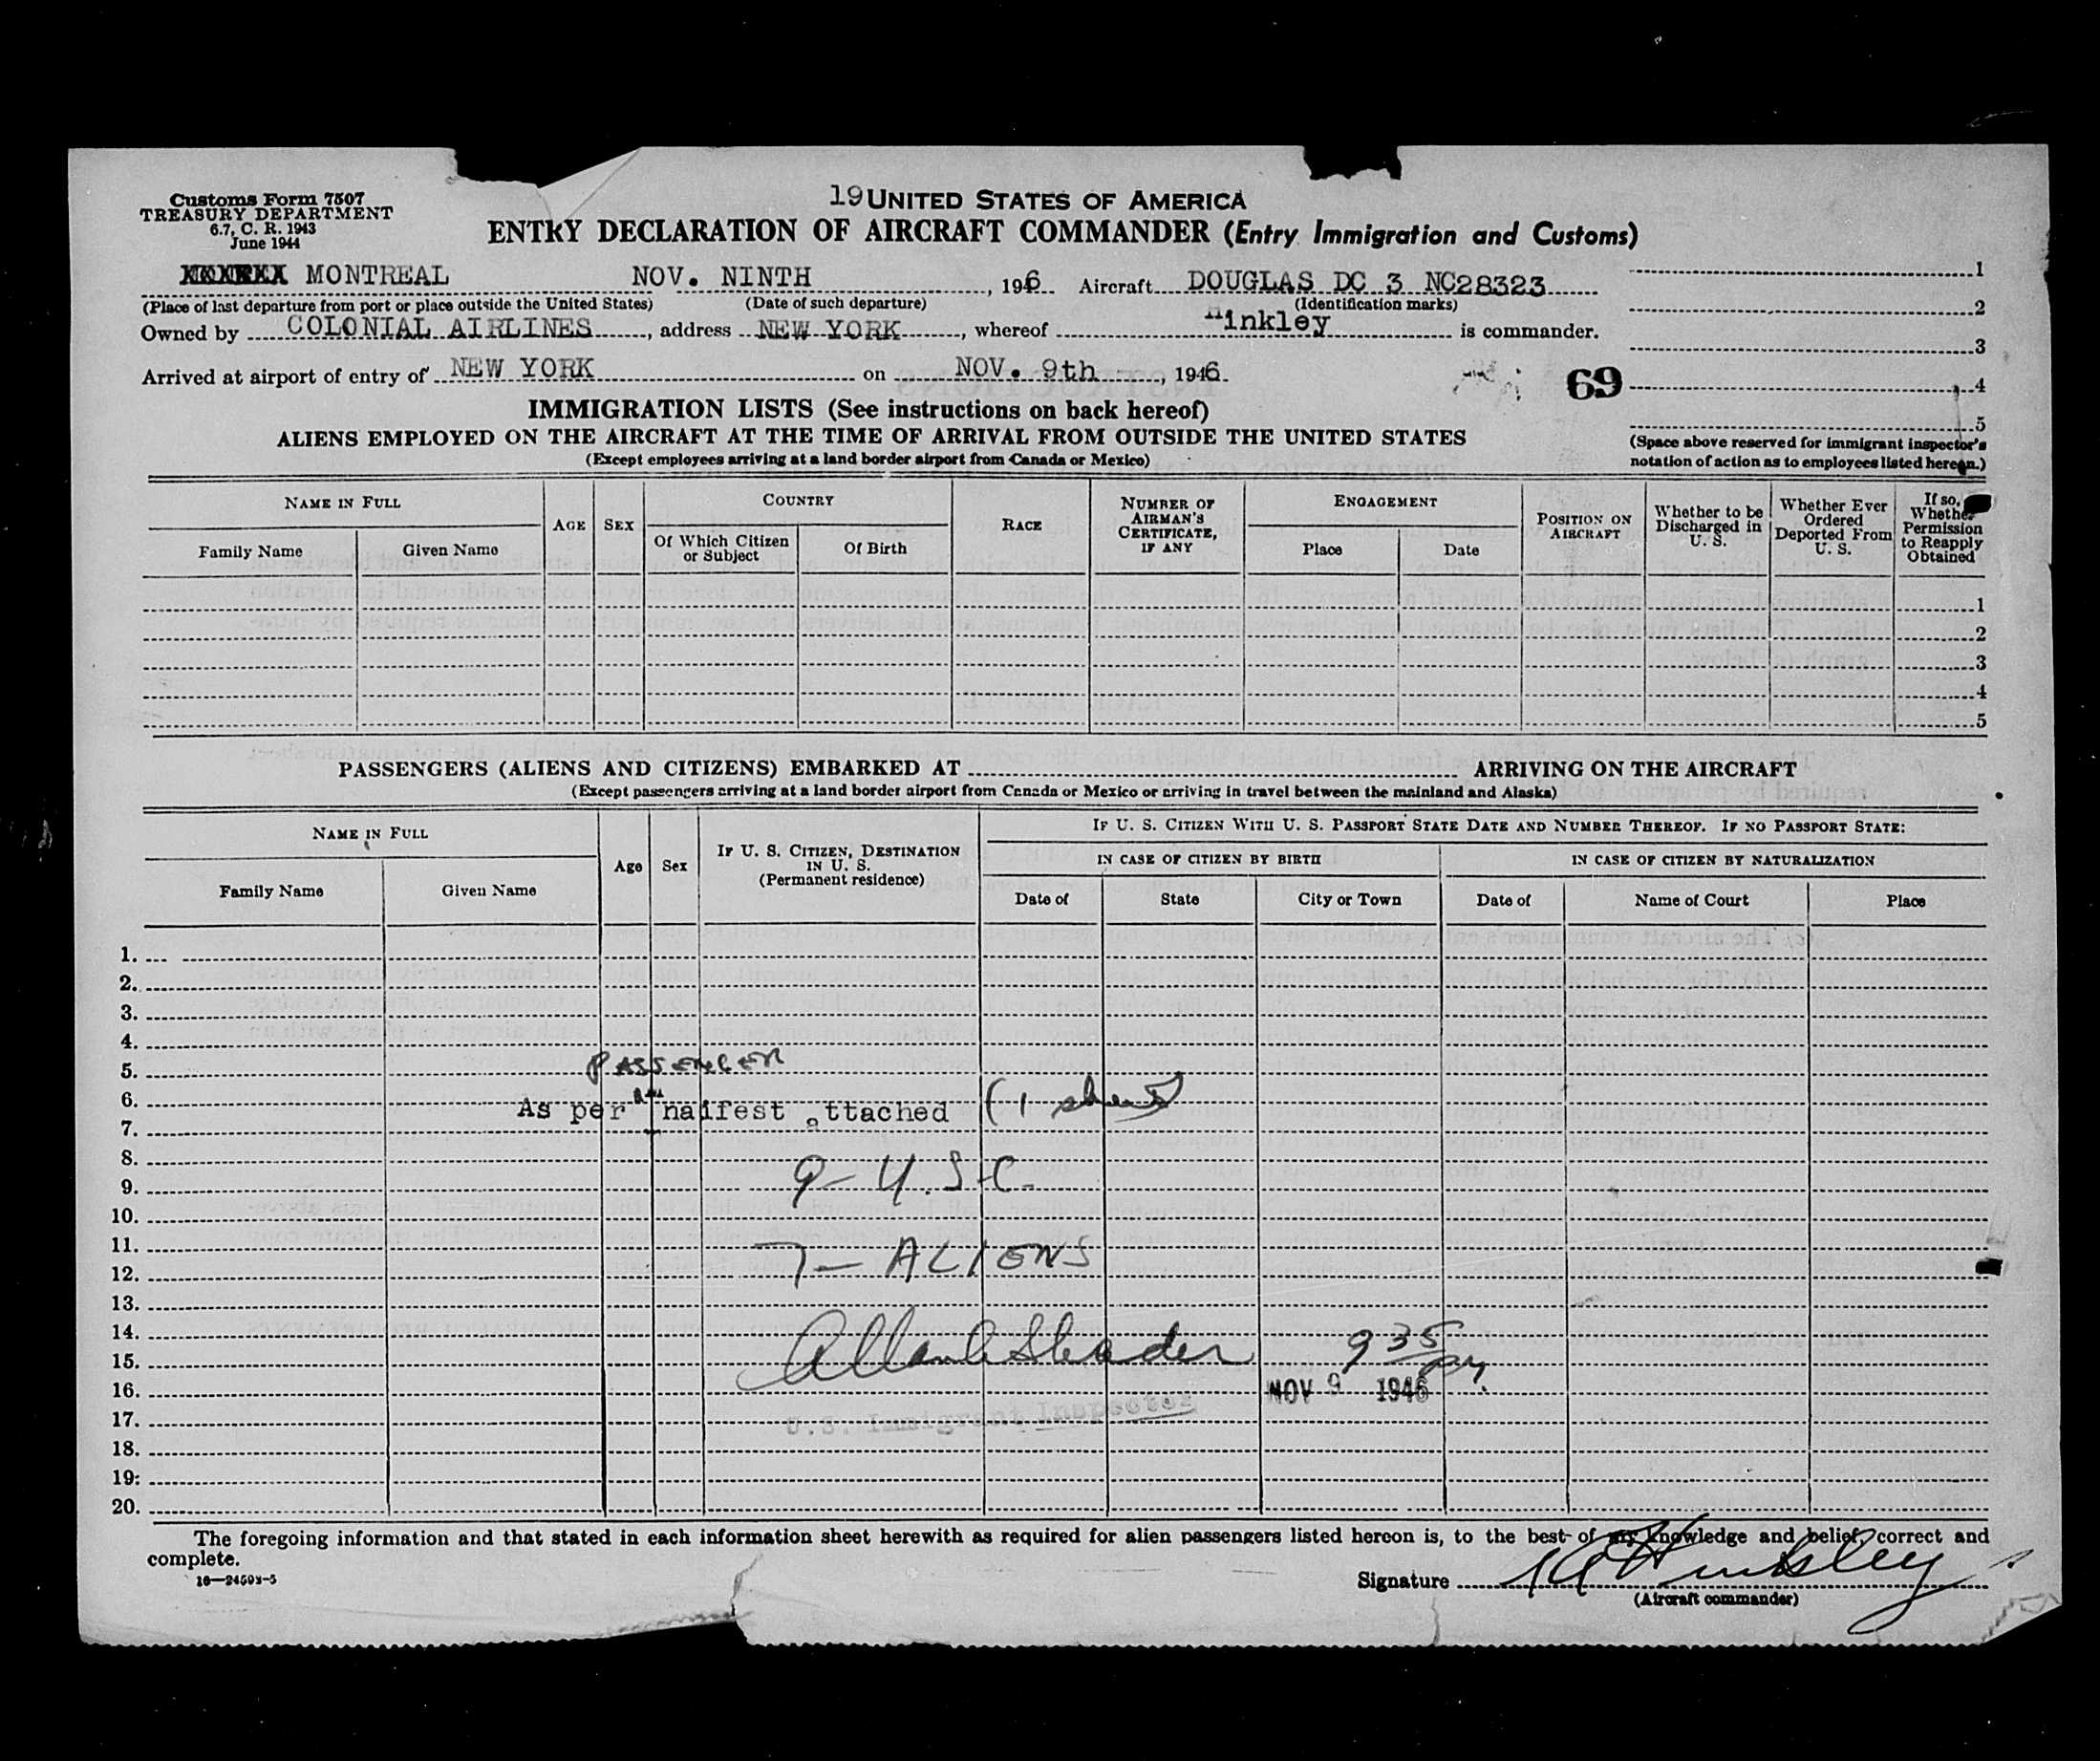 Customs Form 7507
TREASURY DEPARTMENT
6.7, C. R. 1943
June 1944
19 UNITED STATES OF AMERICA
ENTRY DECLARATION OF AIRCRAFT COMMANDER (Entry Immigration and Customs)
MONTREAL NOV. NINTH, 1946 Aircraft DOUGLAS DC 3 NC28323
(Place of last departure from port or place outside the United States) (Date of such departure) (Identification marks)
Owned by COLONIAL AIRLINES, address NEW YORK, whereof Hinkley is commander.
Arrived at airport of entry of NEW YORK on NOV. 9th, 1946.
69
1
2
3
4
5
(Space above reserved for immigrant inspector's
notation of action as to employees listed hereon.)
IMMIGRATION LISTS (See instructions on back hereof)
ALIENS EMPLOYED ON THE AIRCRAFT AT THE TIME OF ARRIVAL FROM OUTSIDE THE UNITED STATES
(Except employees arriving at a land border airport from Canada or Mexico)
NAME IN FULL
Family Name Given Name
AGE SEX
COUNTRY
Of Which Citizen or Subject Of Birth
RACE
NUMBER OF AIRMAN'S CERTIFICATE, IF ANY
ENGAGEMENT
Place Date
POSITION ON AIRCRAFT
Whether to be Discharged in U. S.
Whether Ever Ordered Deported From U. S.
If so, Whether Permission to Reapply Obtained
1
2
3
4
5
PASSENGERS (ALIENS AND CITIZENS) EMBARKED AT ARRIVING ON THE AIRCRAFT
(Except passengers arriving at a land border airport from Canada or Mexico or arriving in travel between the mainland and Alaska)
NAME IN FULL
Family Name Given Name
Age Sex
IF U. S. CITIZEN, DESTINATION IN U. S.
(Permanent residence)
IF U. S. CITIZEN WITH U. S. PASSPORT STATE DATE AND NUMBER THEREOF. IF NO PASSPORT STATE:
IN CASE OF CITIZEN BY BIRTH IN CASE OF CITIZEN BY NATURALIZATION
Date of State City or Town Date of Name of Court Place
1.
2.
3.
4.
5. PASSENGER
6. As per manifest attached (1 sheet)
7.
8.
9. 9 - U.S.C.
10.
11.
12. 7 - ALIENS
13.
14.
15. 9 35 PM.
16. NOV 9 1946
17. U.S. Immigrant Inspector
18.
19.
20.
The foregoing information and that stated in each information sheet herewith as required for alien passengers listed hereon is, to the best of my knowledge and belief, correct and
complete.
16—24503-5
Signature Hinkley
(Aircraft commander)